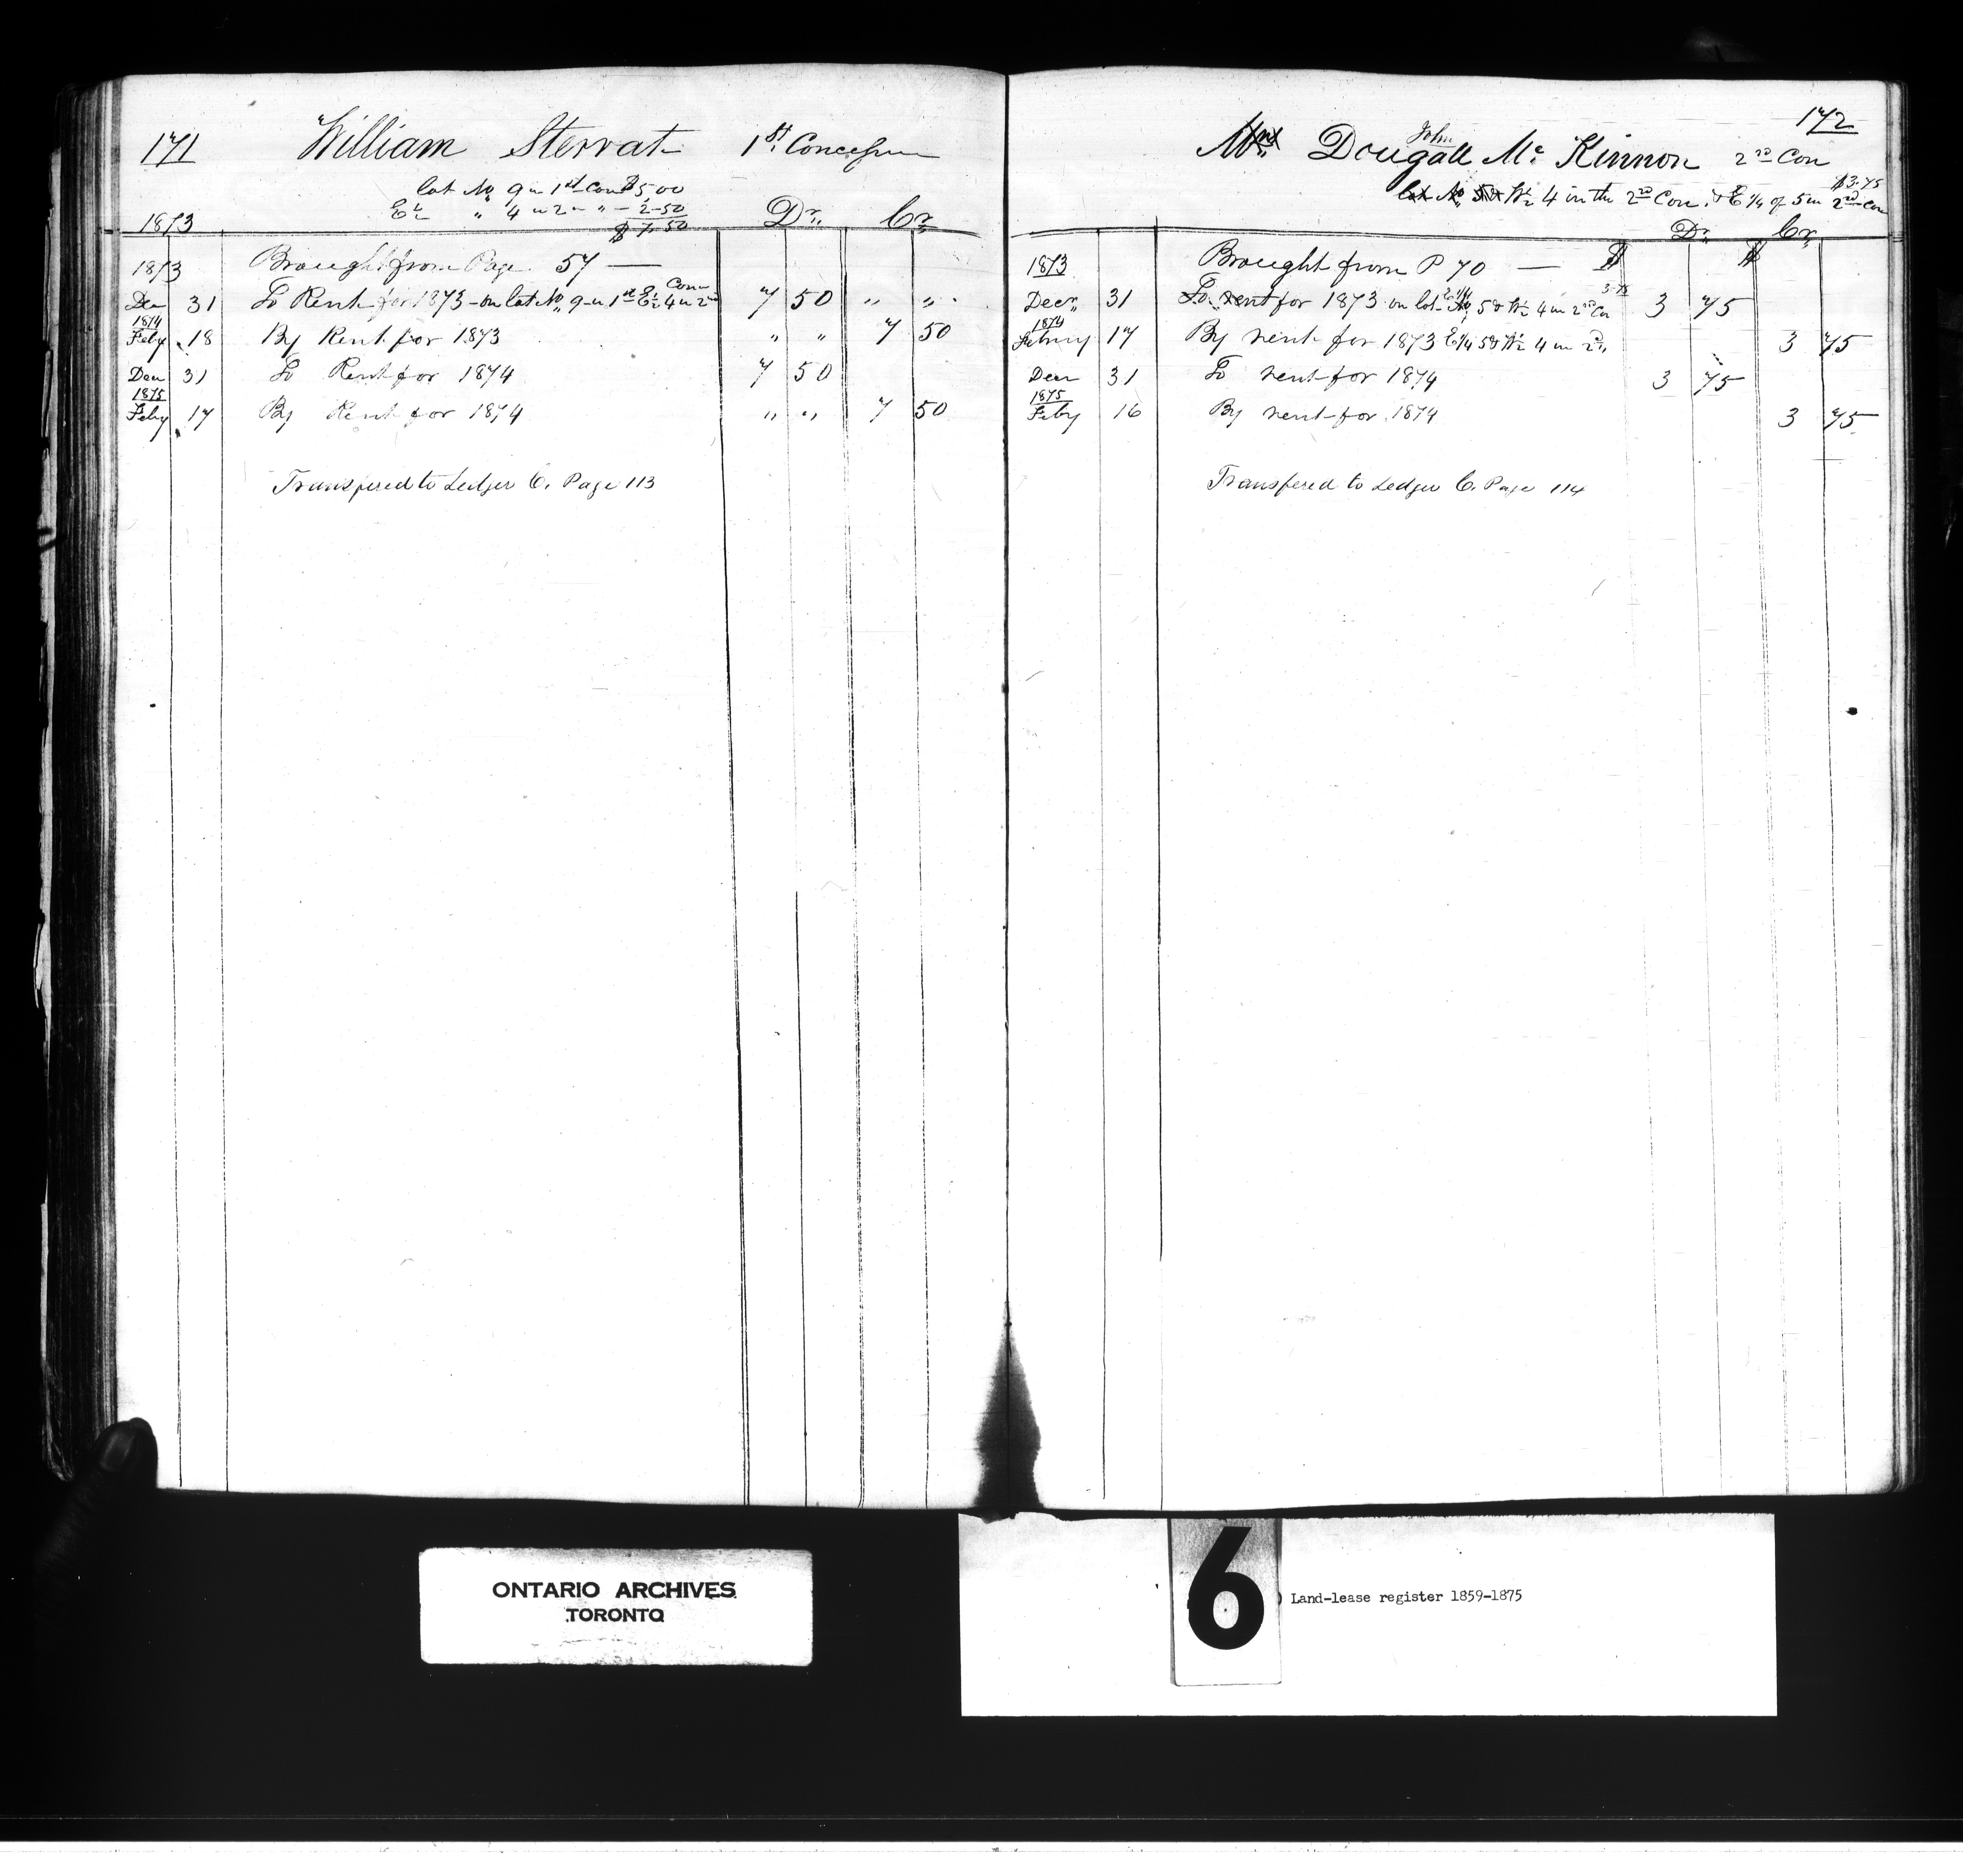 171 William Sterrat 1st Concession
lot No 9 in 1st Con $5 00
E ½ " 4 in 2 " - 2-50
$ 7.50
1873 Dr. Cr.
1873 Brought from Page 57
Decr 31 To Rent for 1873 - on lot No 9 in 1st E ½ 4 in 2nd Conn 7 50 " "
1874
Feby 18 By Rent for 1873 " " 7 50
Decr 31 To Rent for 1874 7 50
1875
Feby 17 By Rent for 1874 " " 7 50
Transfered to Ledger C. Page 113
172
John
Mrs Dougall Mc Kinnon 2nd Con
$3.75
lot No 5 & W ½ 4 in the 2nd Con. & E ¼ of 5 in 2nd Con
Dr. Cr.
1873 Brought from P 70 $ $
Decr 31 To rent for 1873 on lot No 5 & W ½ 4 in 2nd Con 3-75 3 75
1874
Febuy 17 By rent for 1873 E ¼ 5 & W ½ 4 in 2nd 3 75
Decr 31 To rent for 1874 3 75
1875
Feby 16 By rent for 1874 3 75
Transfered to Ledger C. Page 114
ONTARIO ARCHIVES
TORONTO
6
) Land-lease register 1859-1875